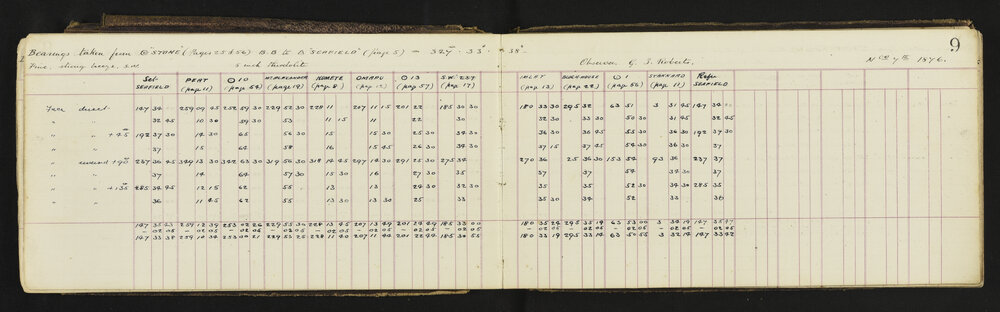 9
Bearings taken from ⊙ "STONE" (Pages 25 & 56) B.B. to △ "SEAFIELD" (page 5) = 327° 33' 38"
Fine, strong breeze, S.W. 5 inch Theodolite Observer G. S. Roberts. 1876.
Set SEAFIELD PEAT (pag 11) ⊙10 (pag 54) (pag 12) KOMETE (pag 8) OMARU ⊙13 (pag 57) S.W. EST (pag 17) INLAT (pag 13) BLOCKHOUSE (pag 22) ⊙1 (pag 55) STANNARD (pag 11) Refer SEAFIELD
Face direct 147 34 259 09 45 252 59 30 229 52 30 228 11 207 11 15 201 22 185 30 30 180 33 30 295 32 63 51 3 31 45 147 34
" " 32 45 10 30 59 30 53 11 15 11 22 30 33 33 30 50 30 31 45 32 45
" " +45° 192 37 30 14 30 65 56 30 15 15 30 25 30 34 30 36 30 36 45 55 30 36 30 192 37 30
" " 37 15 64 58 16 15 45 26 30 34 30 37 15 37 45 54 30 36 30 37
" reversed +90° 237 36 45 349 13 30 342 63 30 319 56 30 318 14 45 297 14 30 291 25 30 275 34 270 36 25 36 30 153 54 93 36 237 37
" " 37 14 64 57 30 15 30 16 27 30 35 37 37 54 30 34 30 37
" " +135° 285 34 45 12 15 62 55 13 13 24 30 32 30 35 35 52 30 34 30 285 35
" " 36 11 45 62 55 13 30 13 30 25 33 35 30 34 52 33 36
147 35 33 259 12 39 253 02 26 229 55 30 228 13 45 207 13 49 201 24 49 185 33 00 180 35 24 295 35 19 63 53 00 3 34 19 147 35 47
- 02 05 - 02 05 - 02 05 - 02 05 - 02 05 - 02 05 - 02 05 - 02 05 - 02 05 - 02 05 - 02 05 - 02 05 - 02 05
147 33 38 259 10 34 253 00 21 229 53 25 228 11 40 207 11 44 201 22 44 185 30 55 180 33 19 295 33 14 63 50 55 3 32 14 147 33 42